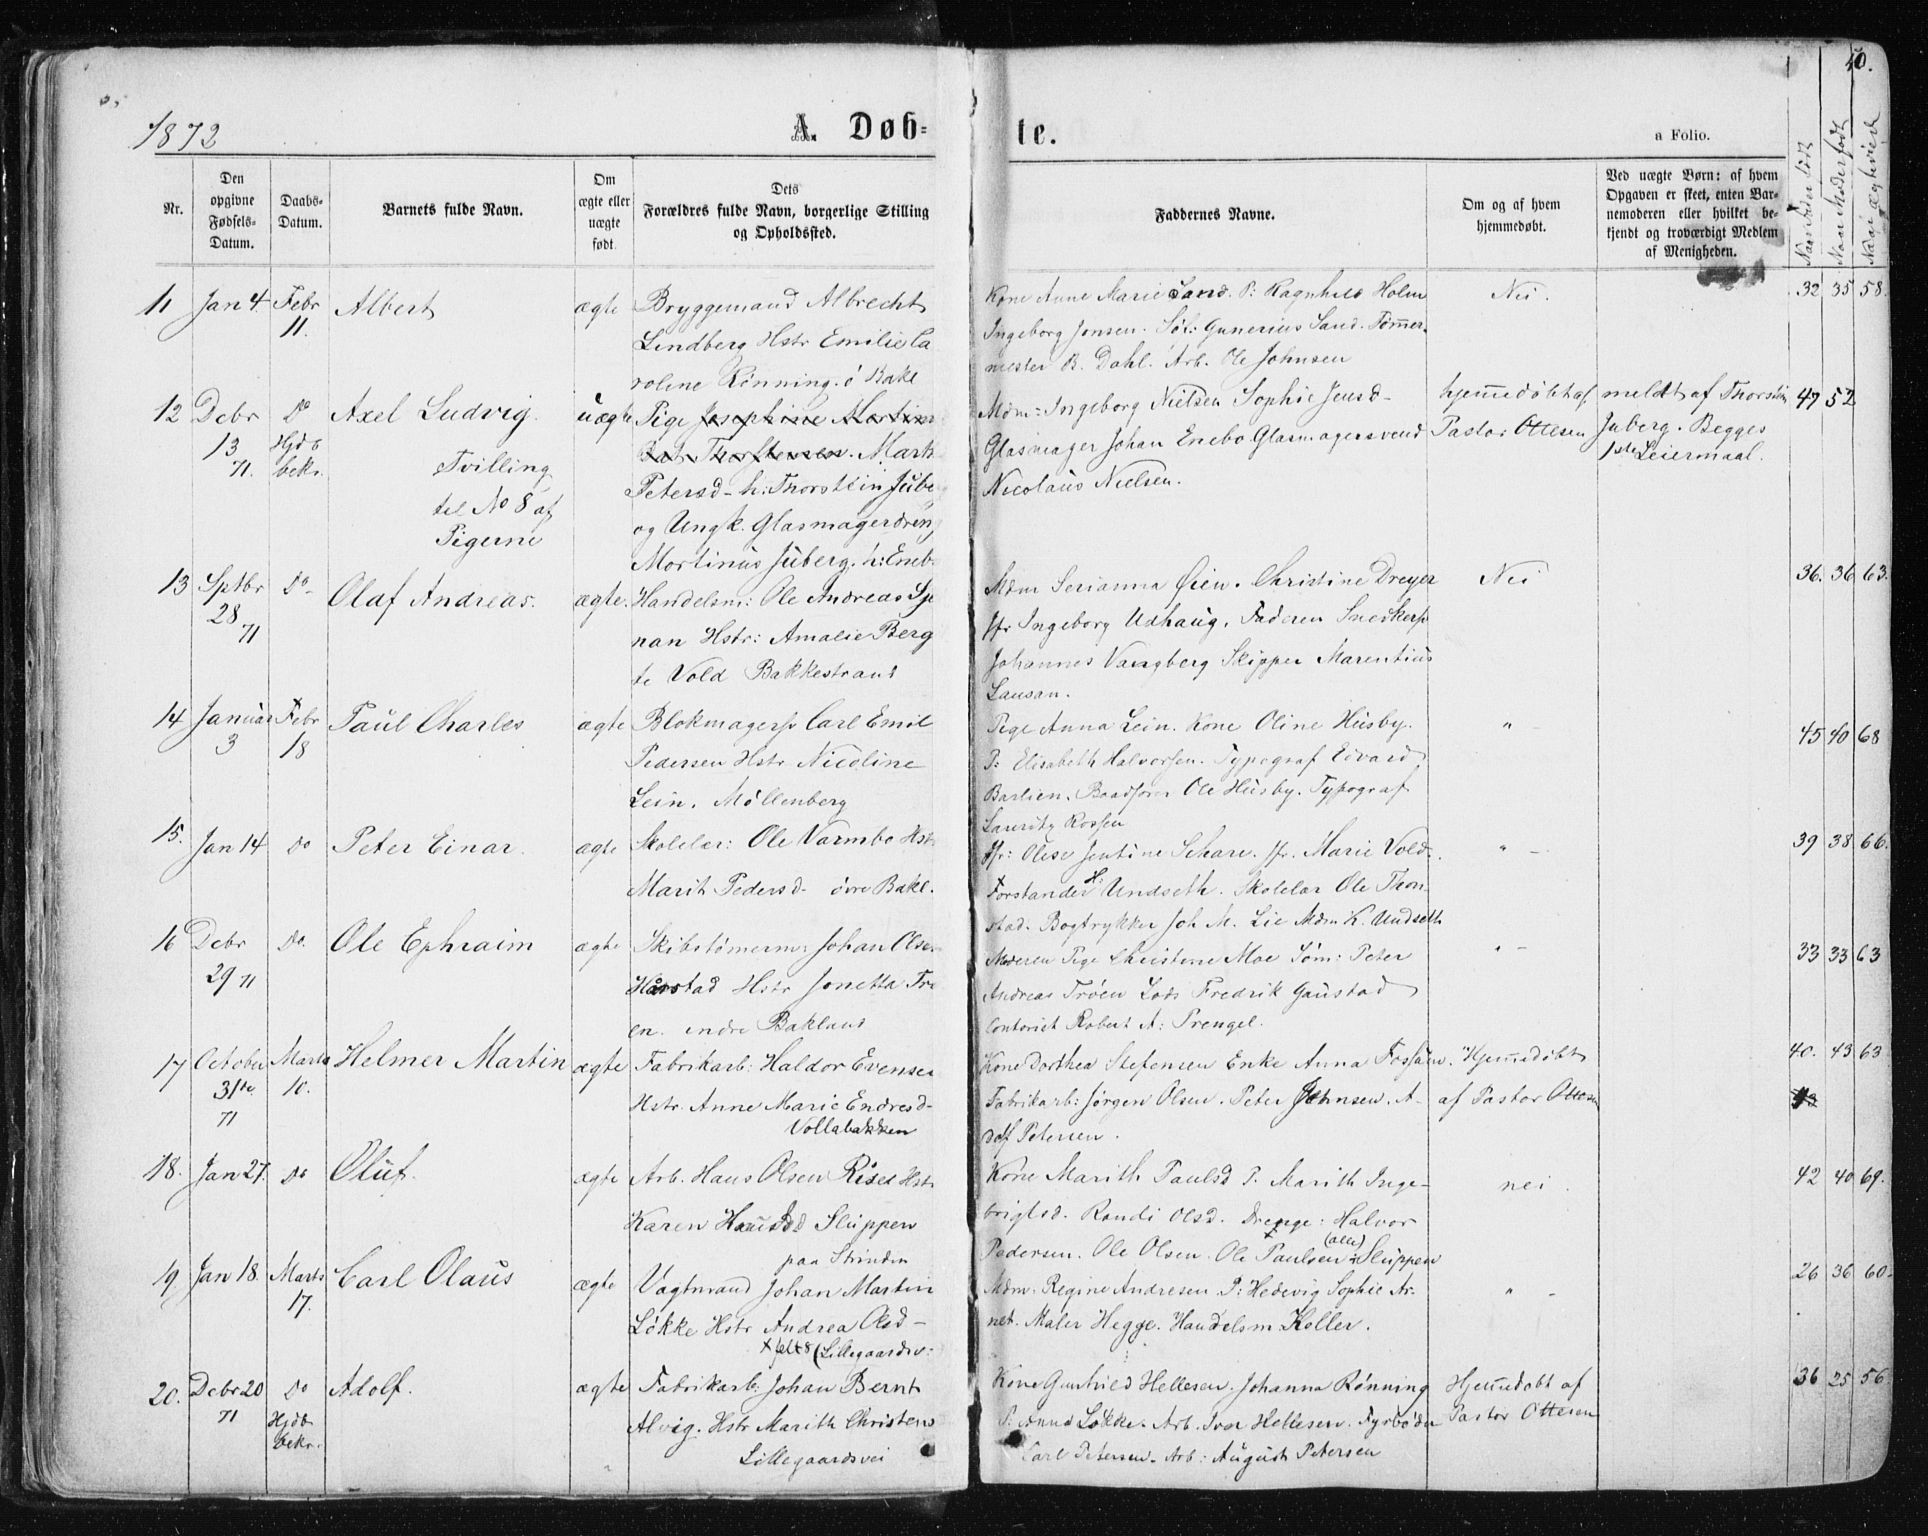 1872
A. Døb=
te.
a Folio.
40.
Nr.
Den opgivne Fødsels-Datum.
Daabs-Datum.
Barnets fulde Navn.
Om ægte eller uægte født.
Dets Forældres fulde Navn, borgerlige Stilling og Opholdssted.
Faddernes Navne.
Om og af hvem hjemmedøbt.
Ved uægte Børn: af hvem Opgaven er skeet, enten Barnemoderen eller hvilket bekjendt og troværdigt Medlem af Menigheden.
Naar Moder født
Naar ægteviede
11 Jan 4 Febr 11. Albert ægte
Bryggemand Albrecht
Lindberg Hstr Emilie Ca
roline Rønning. ö Bakl
Kone Anne Marie Sand. P: Ragnhild Holm
Ingeborg Jonsen. Søf: Gunerius Sand. Tømmer-
mester B. Dahl. Arb. Ole Johnsen
Nei.
32 35 58.
12 Debr 13 71. Do Hjdb bekr. Axel Ludvig.
Tvilling
til No 8 af
Pigerne
uægte
Pige Josephine Martin
Thorstensen. Marth
Petersd- h: Thorstein Jube
og Ungk. Glasmagerdreng
Mortinus Juberg. h: Eneb
Mdm: Ingeborg Nielsen Sophie Jensd-
Glasmager Johan Enebo Glasmagersvend
Nicolaus Nielsen.
hjemmedøbt af
Pastor Ottesen
meldt af Thorstein
Juberg. Begges
1ste Leiermaal.
47 52
13 Sptbr 28 71 Do- Olaf Andreas. ægte.
Handelsm: Ole Andreas Sje
nan Hstr: Amalie Berg
te Vold Bakkestrand
Mdm Serianna Øien. Christine Dreyer
Jfr Ingeborg Udhaug. Faderen Snedkersv
Johannes Vangberg Skipper Marentius
Lausan.
Nei
36. 36 63.
14 Januar 3 Febr 18 Paul Charles ægte
Blokmagersv Carl Emil
Pedersen Hstr Nicoline
Lein. Møllenberg
Pige Anna Lein. Kone Oline Husby.
P: Elisabeth Halvorsen. Typograf Edvard
Barlien. Baadfører Ole Husby. Typograf
Lauritz Rossen
" -
45 40 68
15. Jan 14 Do Peter Einar. ægte
Skolelær: Ole Varmbo Hstr
Marit Pedersd- övre Bakl.
Jfr: Olise Jentine Schare. Jfr. Marie Vold.
Forstander H: Undseth. Skolelær Ole Thon-
stad. Bogtrykker Joh M. Lie Mdm K. Undseth
" -
39 38 66.
16 Debr 29 71 Do. Ole Ephraim ægte
Skibstømerm: Johan Olsen
Harstad Hstr Jonetta Trö
en. indre Bakland
Moderen Pige Christine Moe Søm: Peter
Andreas Trøen Lods Fredrik Gaustad
Contorist Robert A: Prengel.
" -
33 33 63
17 October 31te 71 Marts 10. Helmer Martin ægte
Fabrikarb: Haldor Evensen
Hstr. Anne Marie Endresd-
Vollabakken
Kone Dorthea Stefensen Enke Anna Fossum.
Fabrikarb: Jørgen Olsen. Peter Johnsen. A-
dolf Petersen.
Hjemmedøbt
af Pastor Ottesen
40. 43 63
18. Jan 27. Do Oluf. ægte
Arb. Hans Olsen Rised Hstr
Karen Hansd Sluppen
paa Strinden
Kone Marith Paulsd P. Marith Inge-
brigtsd. Randi Olsd. Drenge: Halvor
Pedersen. Ole Olsen. Ole Paulsen (alle) Sluppen
nei.
42 40 69.
19 Jan 18. Marts 17. Carl Olaus ægte
Vagtmand Johan Martin
Løkke Hstr Andrea Olsd-
(Lillegaardsv:
Mdm. Regine Andresen P: Hedevig Sophie Ar-
net. Maler Hegge. Handelsm Koller.
" -
26 36 60.
20. Debr 20 71 Do Hjdb bekr. Adolf. ægte
Fabrikarb: Johan Bernt
Alvig. Hstr Marith Christens
Lillegaardsvei
Kone Gunhild Hellesen. Johanna Rønning
P: Anna Løkke. Arb. Iver Hellesen. Fyrbøder
Carl Petersen. Arb: August Petersen
Hjemmedøbt af
Pastor Ottesen
36 25 56